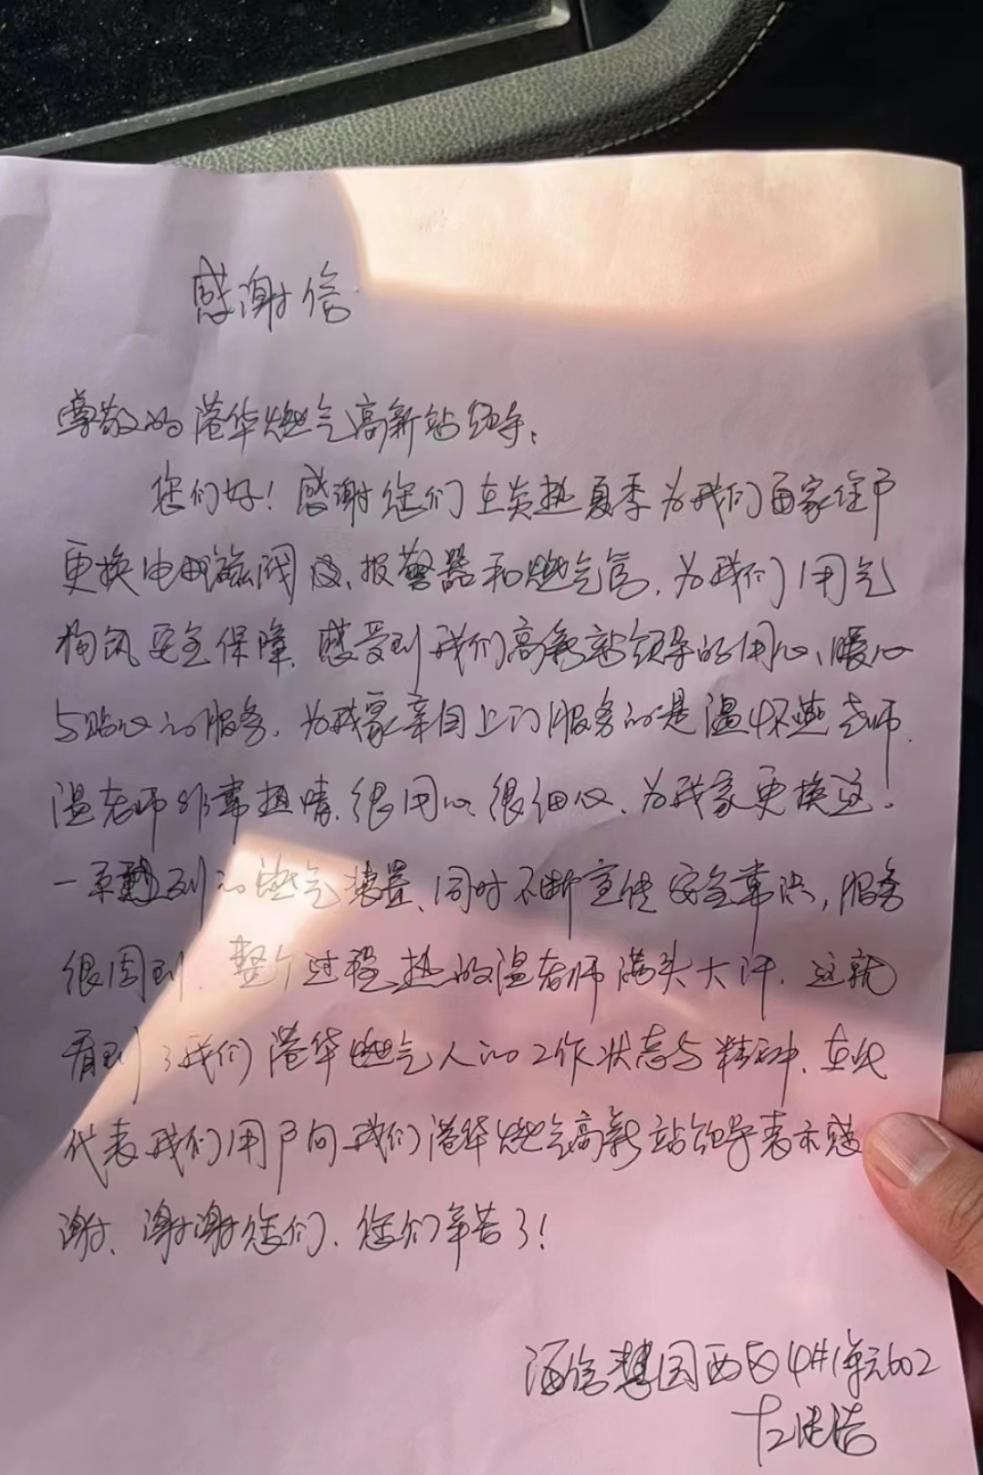 感谢信
尊敬的港华燃气高新站领导：
您们好！感谢您们在炎热夏季为我们百家住户
更换电磁阀及、报警器和燃气管，为我们用气
构筑安全保障，感受到我们高新站领导的用心、暖心
与贴心的服务，为我家亲自上门服务的是温怀燕老师，
温老师非常热情，很用心，很细心，为我家更换这
一系到的燃气装置，同时不断宣传安全常识，服务
很周到，整个过程热的温老师满头大汗，这就
看到了我们港华燃气人的工作状态与精神，在此
代表我们用户向我们港华燃气高新站领导表示感
谢，谢谢您们，您们辛苦了！
海信慧园西区4#1单元602